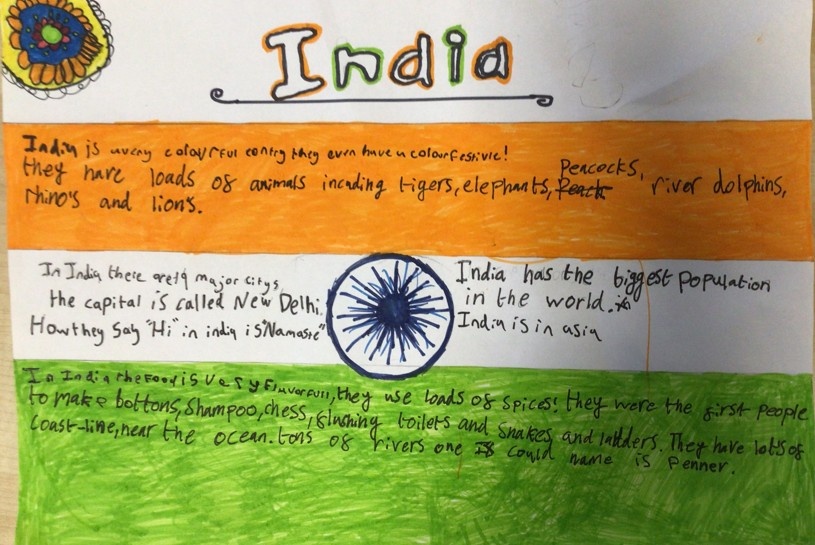 India
India is a very colourful contry they even have a colour festivle!
they have loads of animals incuding tigers, elephants, Peacocks, river dolphins,
rhino's and lion's.
In India there are 19 major citys
the capital is called New Delhi.
How they say "Hi" in india is "Namaste"
India has the biggest population
in the world.
India is in asia
In India the food is very flavorfull, they use loads of spices! they were the first people
to make bottons, shampoo, chess, flushing toilets and snakes and ladders. They have lots of
coast-line, near the ocean. tons of rivers one I could name is Penner.